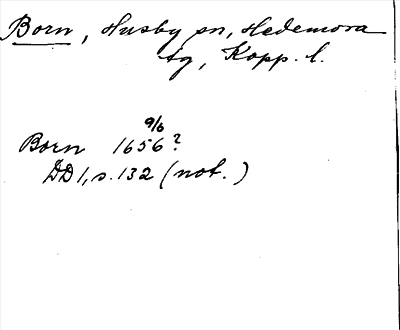 Born, Husby sn, Hedemora
tg, Kopp. l.
9/6
Born 1656?
DD 1, s. 132 (not.)